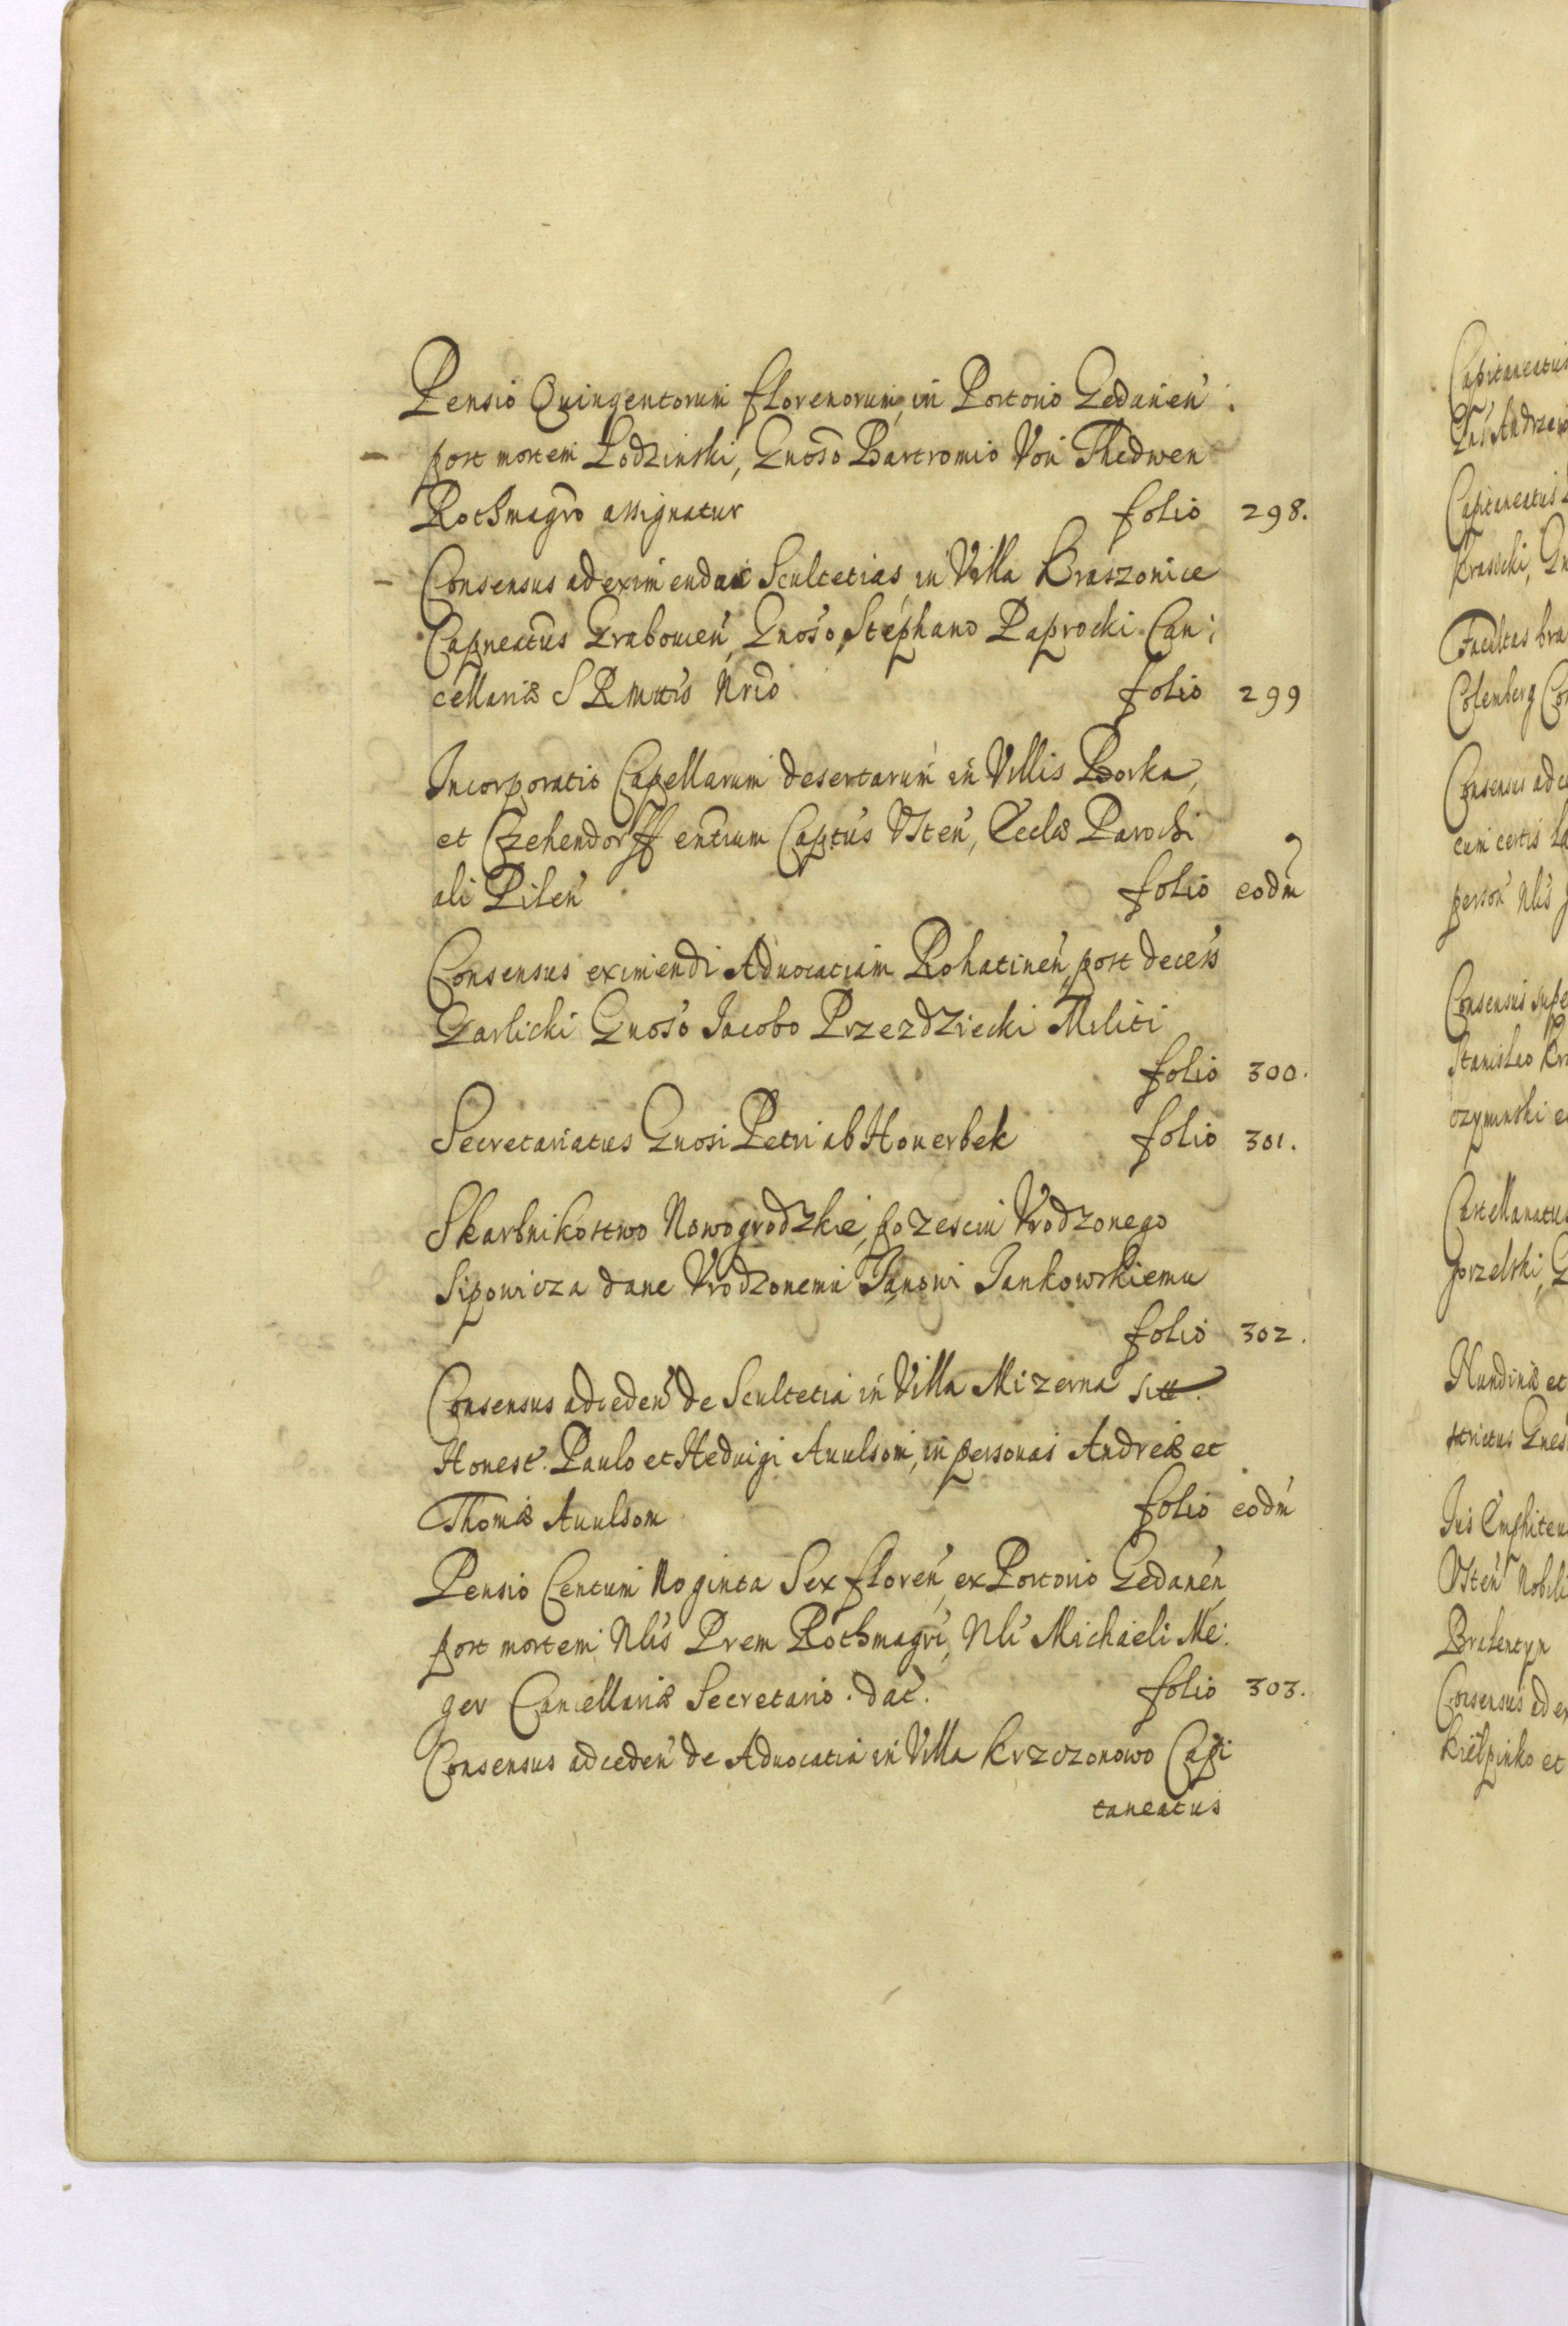 Pensio Quingentorum florenorum, in Portorio Gedanen̄:
– post mortem Łodzinski, Gnoso Bartromio Von Thedwen
Rothmagro assignatur folio 298.
– Consensus ad eximendas Scultetias, in Villa Kraszonice
Capneatus Grabowien̄, Gnoso Stephano Paprocki Can:
cellariæ S R Mttis Nrio folio 299
Incorporatio Capellarum desertarum in Villis Borka,
et Czehendorff entium Captus Usten̄, Eccle Parochi
ali Pilen̄ folio eodm̄
Consensus eximendi Aduocatiam Rohatinen̄, post decess
Garlicki Gnoso Jacobo Przezdziecki Militi
folio 300.
Secretariatus Gnosi Petri ab Houerbek folio 301.
Skarbnikostwo Nowogrodzkie, po zesciu Vrodzonego
Sipowicza dane Vrodzonemu Janowi Jankowskiemu
folio 302.
Consensus adceden̄ de Scultetia in Villa Mizerna sitt.
Honest. Paulo et Heduigi Auulsom, in personas Andreæ et
Thomæ Auulsom folio eodm̄
Pensio Centum Noginta Sex floren̄, ex Portorio Gedanen̄,
post mortem Nlis Prem Rothmagri, Nli Michaeli Me:
ger Cancellariæ Secretario. dat. folio 303.
Consensus adceden̄ de Aduocatia in Villa Krzczonowo Capi
taneatus
Capitaneatus
Andrzeio
Capitaneatus
Krasicki,
Facultas
Colenberg
Consensus
cum certis
person̄ Nlis
Consensus
Stanislao
ozyminski
Castellanatus
Gorzelski,
Nundinæ et
strictus
Jus Emphiteu
Usten̄ Nobili
Consensus ad
Kiełpinko et